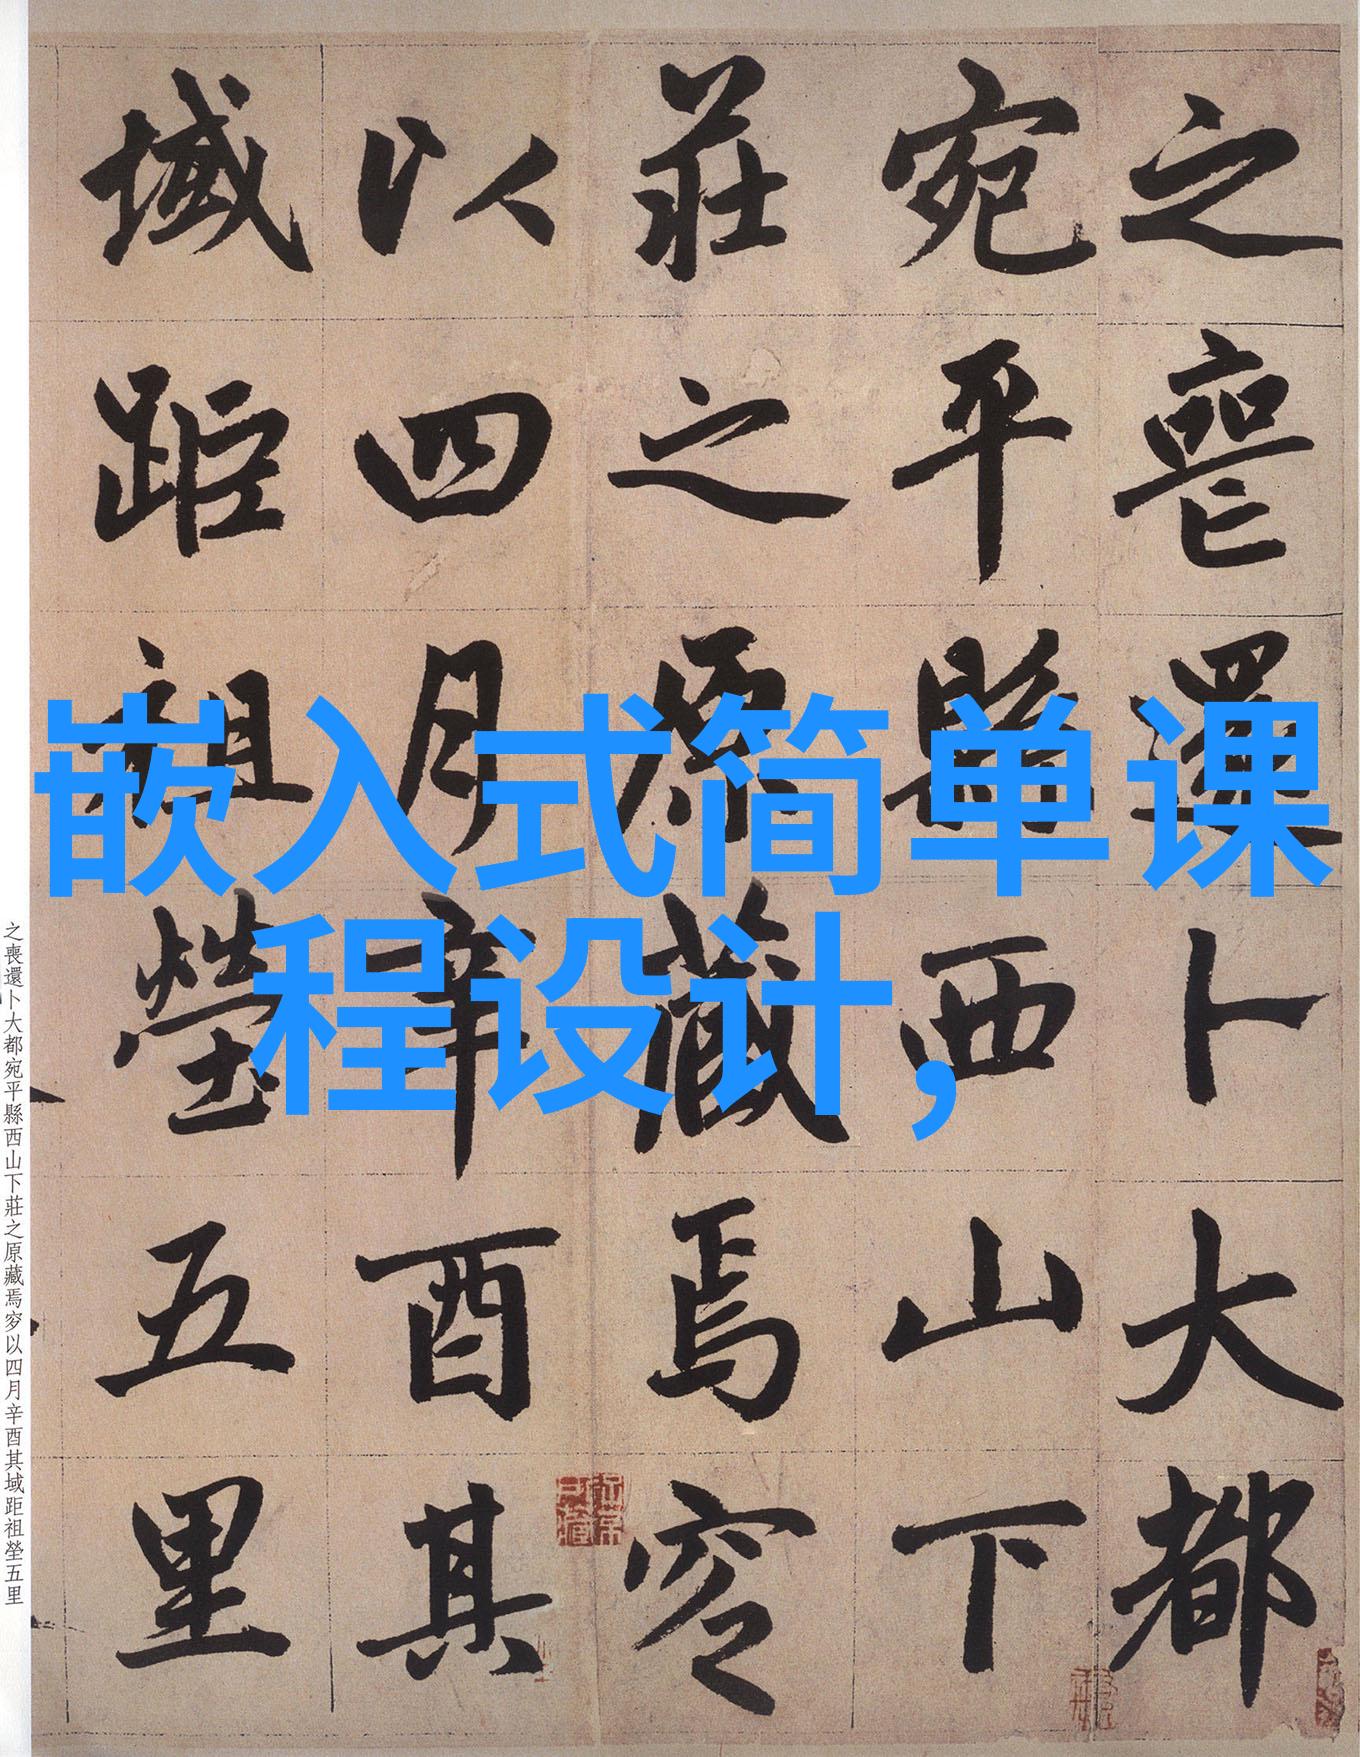 之喪還卜大都
宛平縣西山下
莊之原藏焉穸
以四月辛酉其
域距祖塋五里
嵌入式简单课
程设计，
之喪還卜大都宛平縣西山下莊之原藏焉穸以四月辛酉其域距祖塋五里